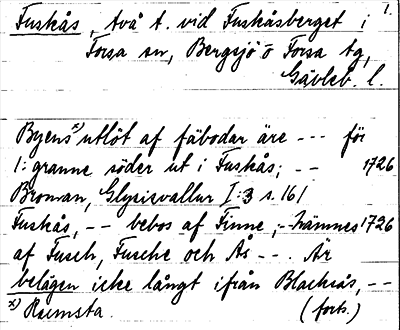 1.
Fuskås, två t. vid Fuskåsberget i
Forsa sn, Bergsjö o Forsa tg,
Gävleb. l.
Byens x) utlöt af fäbodar äre --- för
1: granne söder ut i Fuskås; -- 1726
Broman, Glysisvallur I:3 s. 161
Fuskås, -- bebos af Finne; - nämnes 1726
af Fusch, Fusche och Ås -- . Är
belägen icke långt ifrån Blacksås, --
x) Rumsta. (forts.)